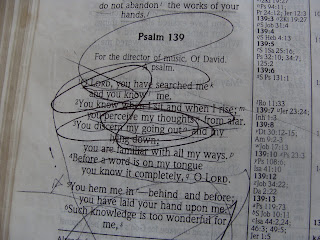 do not abandon the works of your
hands.
Psalm 139
For the director of music. Of David.
A psalm.
O LORD, you have searched me
and you know me.
You know when I sit and when I rise;
you perceive my thoughts from afar.
You discern my going out and my
lying down;
you are familiar with all my ways.
Before a word is on my tongue
you know it completely, O LORD.
You hem me in—behind and before;
you have laid your hand upon me.
Such knowledge is too wonderful for
me,
Pr 24:12; Jer 12:3
139:2
139:3
139:4
Heb 4:13
139:5
Ps 32:10; 34:7;
125:2
139:6
Ro 11:33
139:7 Jer 23:24;
Jnh 1:3
139:8
Dt 30:12-15;
Am 9:2-3
Job 17:13
139:10 Ps 23:3
Ps 108:6;
Isa 41:10
139:12
Job 34:22;
Da 2:22
139:13
Ps 119:73
Job 10:11
Isa 44:2,24;
46:3; 49:5;
Jer 1:5